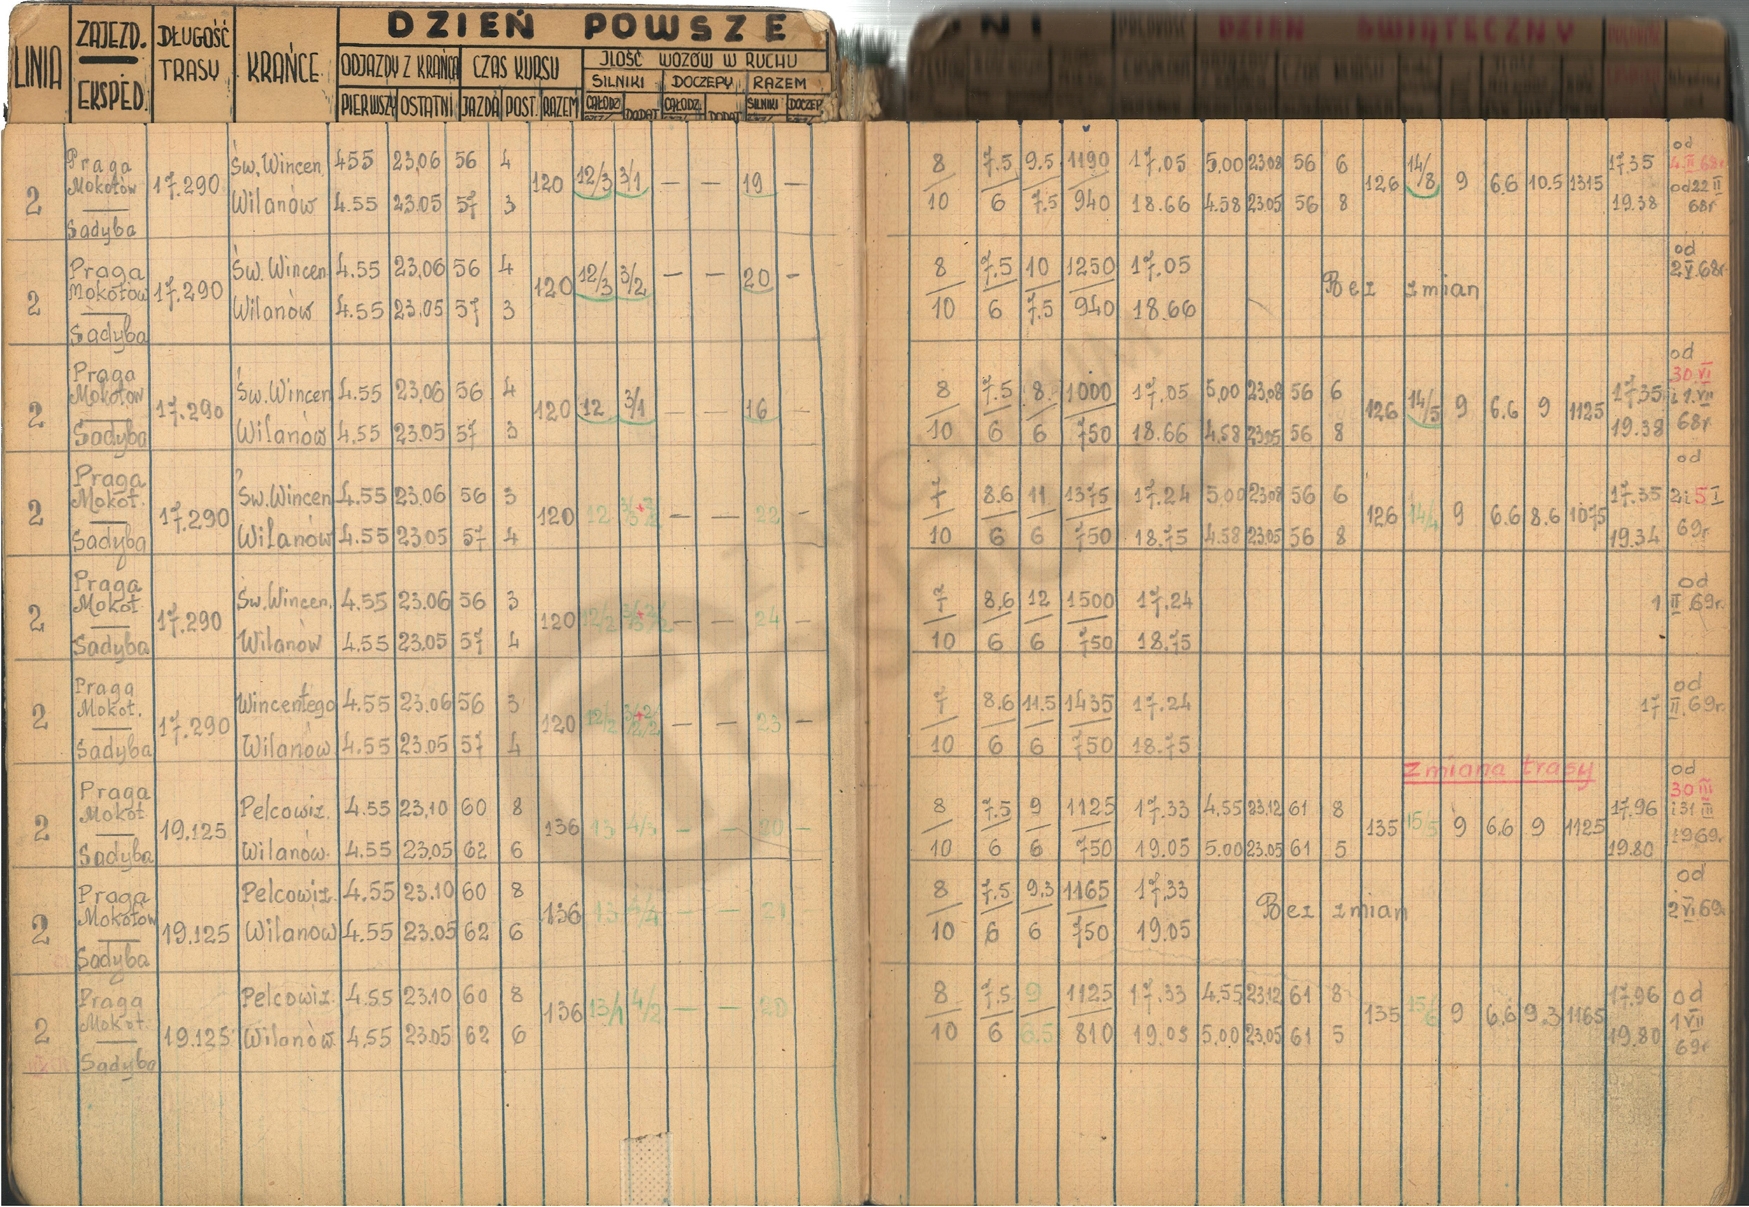 LINIA
ZAJEZD.
EKSPED.
DŁUGOŚĆ
TRASY
KRAŃCE
DZIEŃ POWSZE
ODJAZDY Z KRAŃCA
CZAS KURSU
JLOŚĆ WOZÓW W RUCHU
SILNIKI DOCZEPY RAZEM
PIERWSZY OSTATNI JAZDA POST. RAZEM CAŁODZ DODAT CAŁODZ DODAT SILNIKI DOCZEP
DNI
DZIEŃ ŚWIĄTECZNY
Praga Św. Wincen. 455 23,06 56 4 8 7.5 9.5 1190 17.05 5,00 23.08 56 6 17.35 od
Mokotów 4.II 68r.
2 17.290 120 12/3 3/1 — — 19 — 126 14/8 9 6.6 10.5 1315 od 22 II
Wilanów 4.55 23.05 57 3 10 6 7.5 940 18.66 4.58 23.05 56 8 19.38 68r
Sadyba
Praga Św. Wincen. 4.55 23,06 56 4 8 7.5 10 1250 17.05 od
Mokotów 2 V.68r.
2 17.290 120 12/3 3/2 — — 20 — Bez zmian
Wilanów 4.55 23.05 57 3 10 6 7.5 940 18.66
Sadyba
Praga od
Mokotów Św. Wincen 4.55 23,06 56 4 8 7.5 8. 1000 17.05 5,00 23.08 56 6 17.35 30.VI
2 17.290 120 12 3/1 — — 16 — 126 14/5 9 6.6 9 1125 i 1.VII
Sadyba Wilanów 4.55 23.05 57 3 10 6 6 750 18.66 4.58 23.05 56 8 19.38 68r
Praga od
Mokot. Św. Wincen 4.55 23.06 56 3 7 8.6 11 1375 17.24 5,00 23.08 56 6 17.35 2 i 5 I
2 17.290 120 12 — — 22 — 126 14/4 9 6.6 8.6 1075
Sadyba Wilanów 4.55 23.05 57 4 10 6 6 750 18.75 4.58 23.05 56 8 19.34 69r
Praga od
Mokot Św. Wincen. 4.55 23.06 56 3 7 8.6 12 1500 17.24 1 II.69r.
2 17.290 120 12/2 — — 24 —
Sadyba Wilanów 4.55 23.05 57 4 10 6 6 750 18.75
Praga od
Mokot. Wincentego 4.55 23.06 56 3 7 8.6 11.5 1435 17.24 17 II.69r.
2 17.290 120 12/2 — — 23 —
Sadyba Wilanów 4.55 23.05 57 4 10 6 6 750 18.75
Zmiana trasy
Praga od
Mokot Pelcowiz. 4.55 23,10 60 8 8 7.5 9 1125 17.33 4.55 23.12 61 8 17.96 30 III
2 19.125 136 13 4/3 — — 20 — 135 15/5 9 6.6 9 1125 i 31 III
Sadyba Wilanów. 4.55 23.05 62 6 10 6 6 750 19.05 5.00 23.05 61 5 19.80 1969r.
Praga Pelcowiz. 4.55 23.10 60 8 8 7.5 9.3 1165 17.33 od
Mokotów
2 19.125 136 13 4/4 — — 21 — Bez zmian 2 VI 69r
Wilanów 4.55 23.05 62 6 10 6 6 750 19.05
Sadyba
Praga Pelcowiz. 4.55 23.10 60 8 8 7.5 9 1125 17.33 4,55 23.12 61 8 17.96 od
Mokot. 136 13/1 4/2 — — 20 135 15/6 9 6.6 9.3 1165 1 VII
2 19.125 Wilanów. 4.55 23.05 62 6 10 6 6.5 810 19.03 5,00 23.05 61 5 19.80 69r
Sadyba